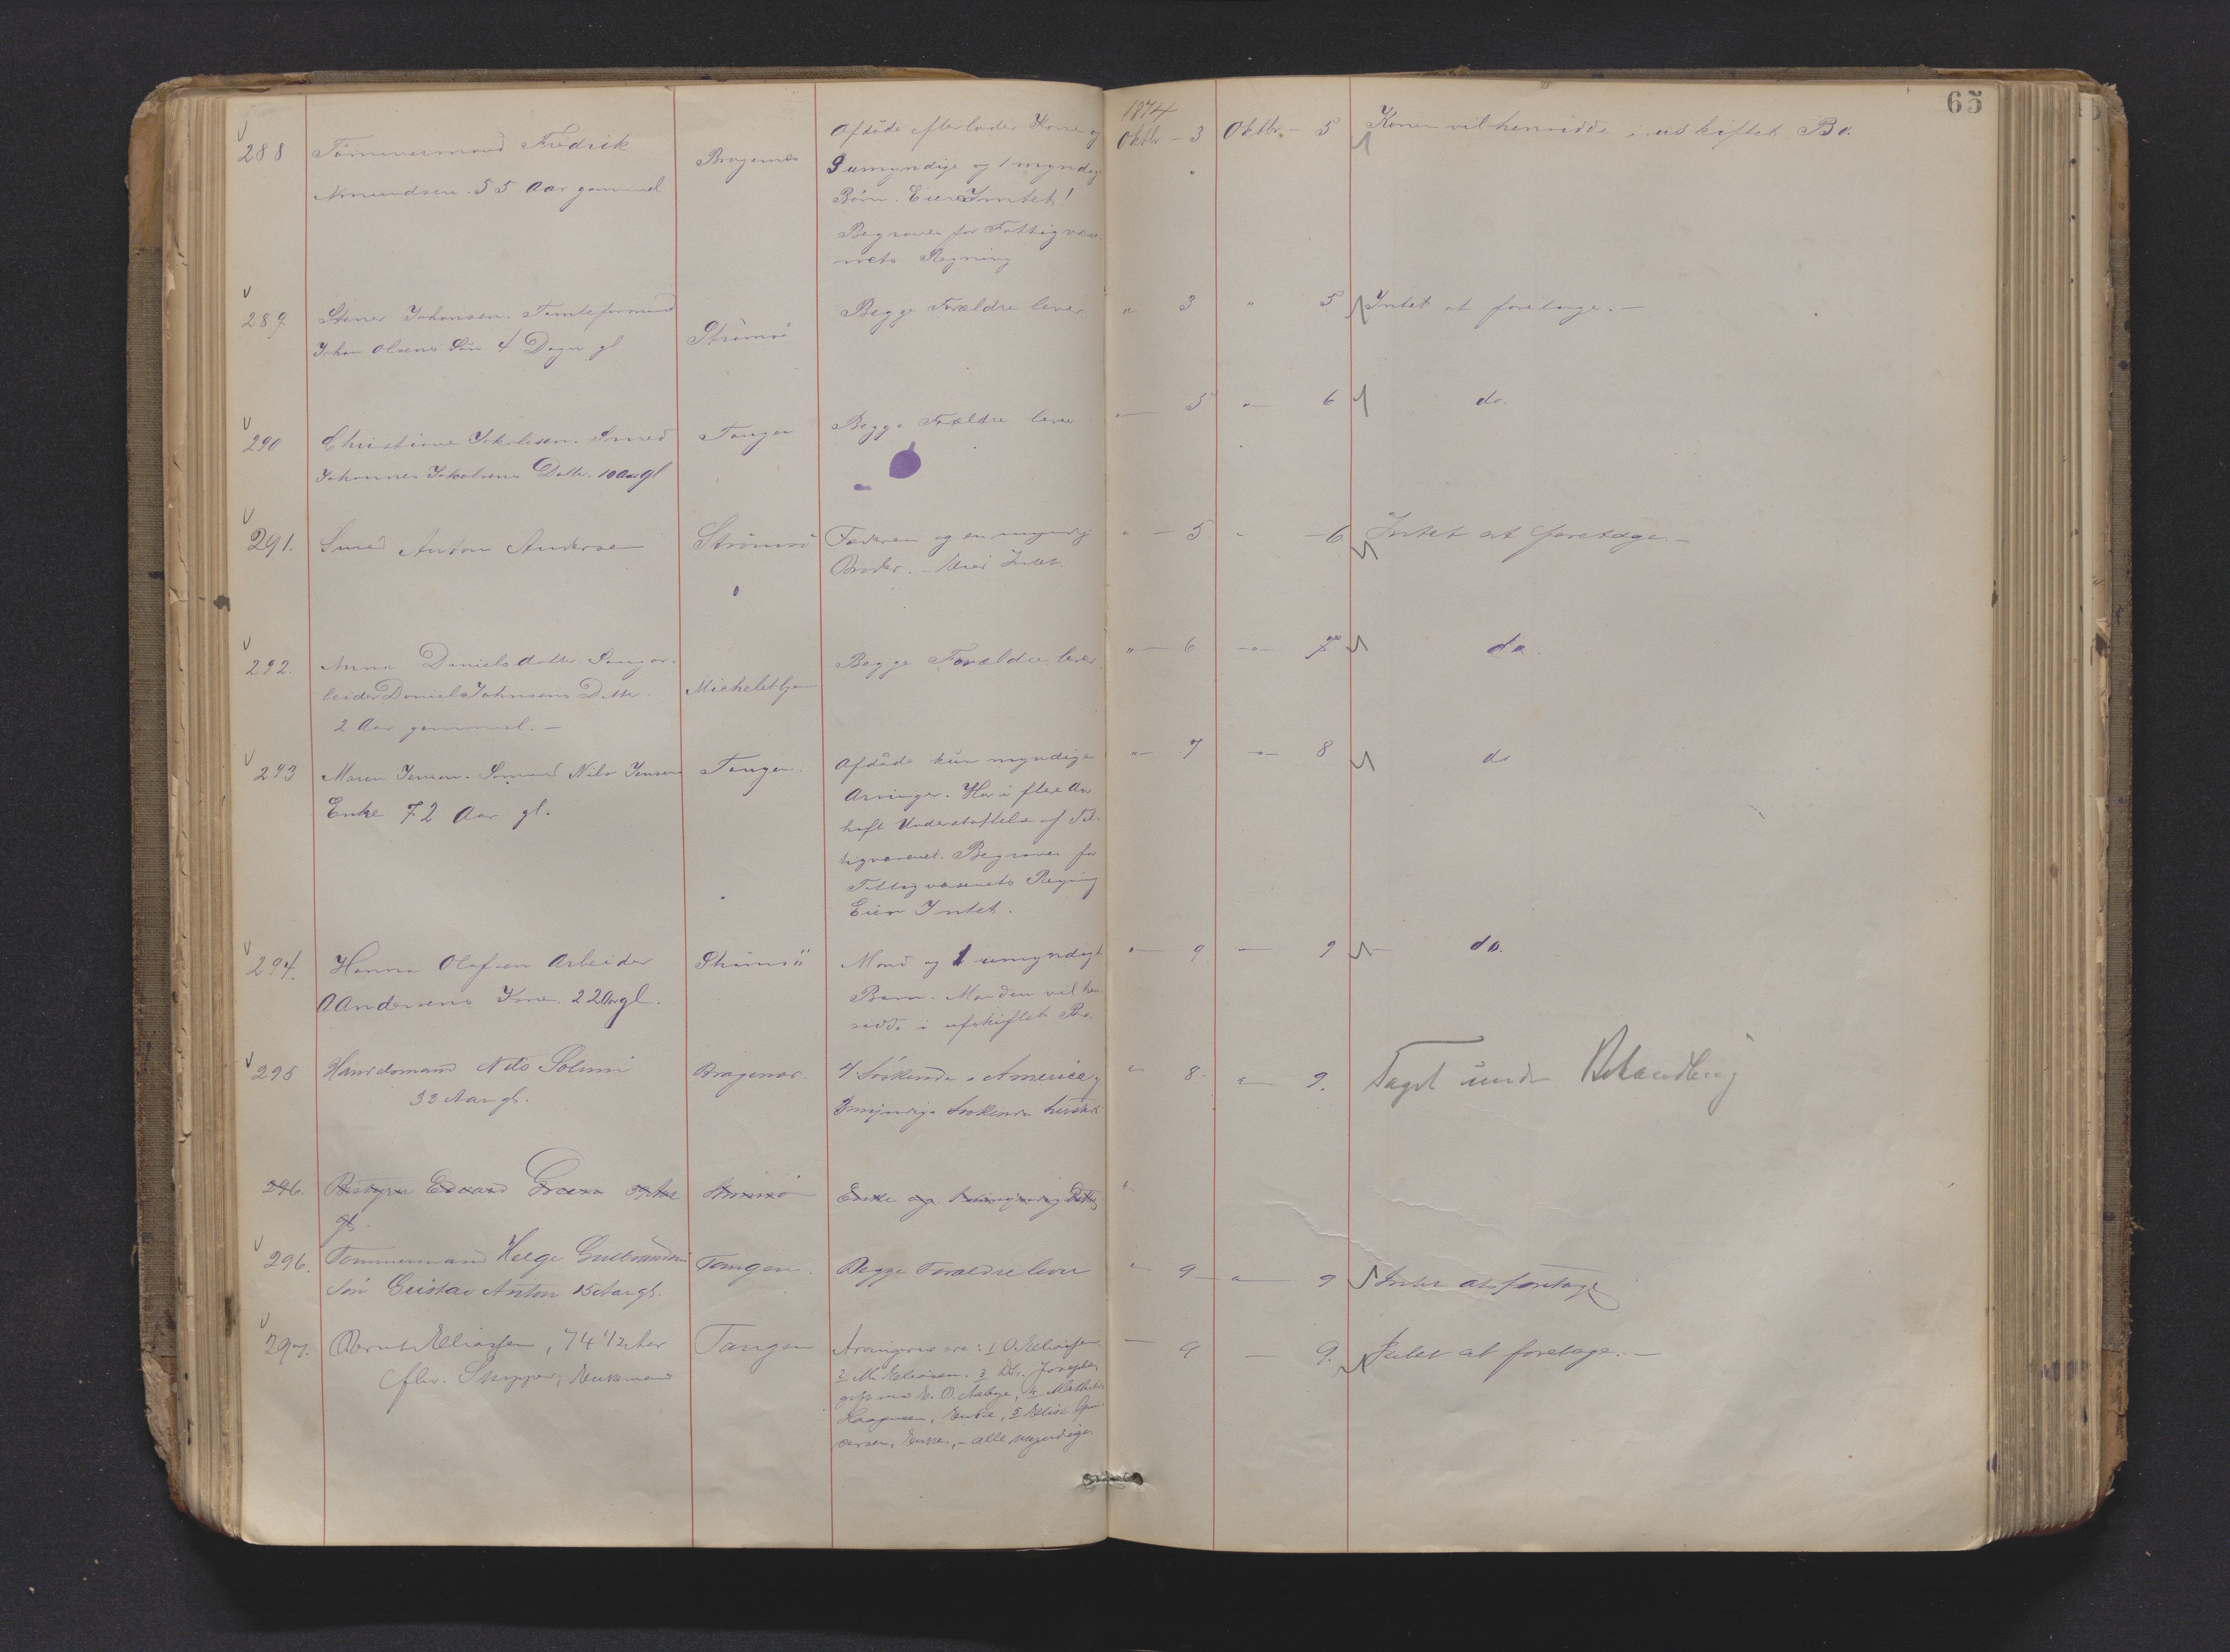 65
1874
288 Tømmermand Fredrik
Amundsen. 55 Aar gammel
Bragernes
Afdøde efterlader Kone og
9 umyndige og 1 myndig
Børn. Eier Intet!
Begraves for Fattigvæse-
nets Regning
Oktbr - 3 Oktbr. - 5 Konen vil hensidde i uskiftet Bo.
289 Stener Johansen. Tomteformand
Johan Olsens Søn 4 Dage gl
Strømsø
Begge Forældre lever
" 3 " 5 Intet at foretage. -
290 Christiane Jakobsen. Smed
Johannes Jakobsens Datter. 10 Aar gl
Tangen
Begge Forældre lever
" 5 " 6 do.
291. Smed Anton Andersen
Strømsø
Faderen og en myndig
Broder. - Eier Intet.
" - 5 " - 6 Intet at foretage. -
292. Anna Danielsdatter.
beider Daniel Johnsens Datter.
2 Aar gammel. -
Begge Forældre lever
" - 6 - " - 7 do
293 Maren Jensen. Sømand Nils Jensens
Enke 72 Aar gl.
Tangen.
Afdøde kun myndige
Arvinger. Har i flere Aar
haft Understøttelse af Fat-
tigvæsenet. Begraves for
Fattigvæsenets Regning
Eier Intet.
" - 7 - " - 8 do
294. Hanna Olafsen Arbeider
A Andersens Kone. 22 Aar gl.
Strømsö
Mand og 1 umyndigt
Barn. Manden vil hen-
sidde i uskiftet Bo.
" - 9 - 9 do.
295 Handelsmand Nils Solum
33 Aar gl.
Bragernes.
4 Søskende i America og
3 myndige Søskende hersteds
" 8. " - 9. Taget under Behandling
296. Bestyrer Edvard Aar
gl.
Strømsø
Enke og 1 umyndig Datter
"
296. Tømmermand Helge Gulbrandsens
Søn Gustav Anton 15 Aar gl.
Tangen.
Begge Forældre lever
" 9 - " - 9 Intet at foretage
297. Bernt Eliassen, 74 1/2 Aar
fhv. Skipper, Enkemand
Tangen
Arvingerne ere: 1 O. Eliassen.
2 M. Eliassen. 3 Dtr. Josephe,
gift med E. O. Aabye, 4 Mathilde
Haagensen, Enke, 5 Elise
Enke, - alle myndige.
- 9 - 9. Intet at foretage. -